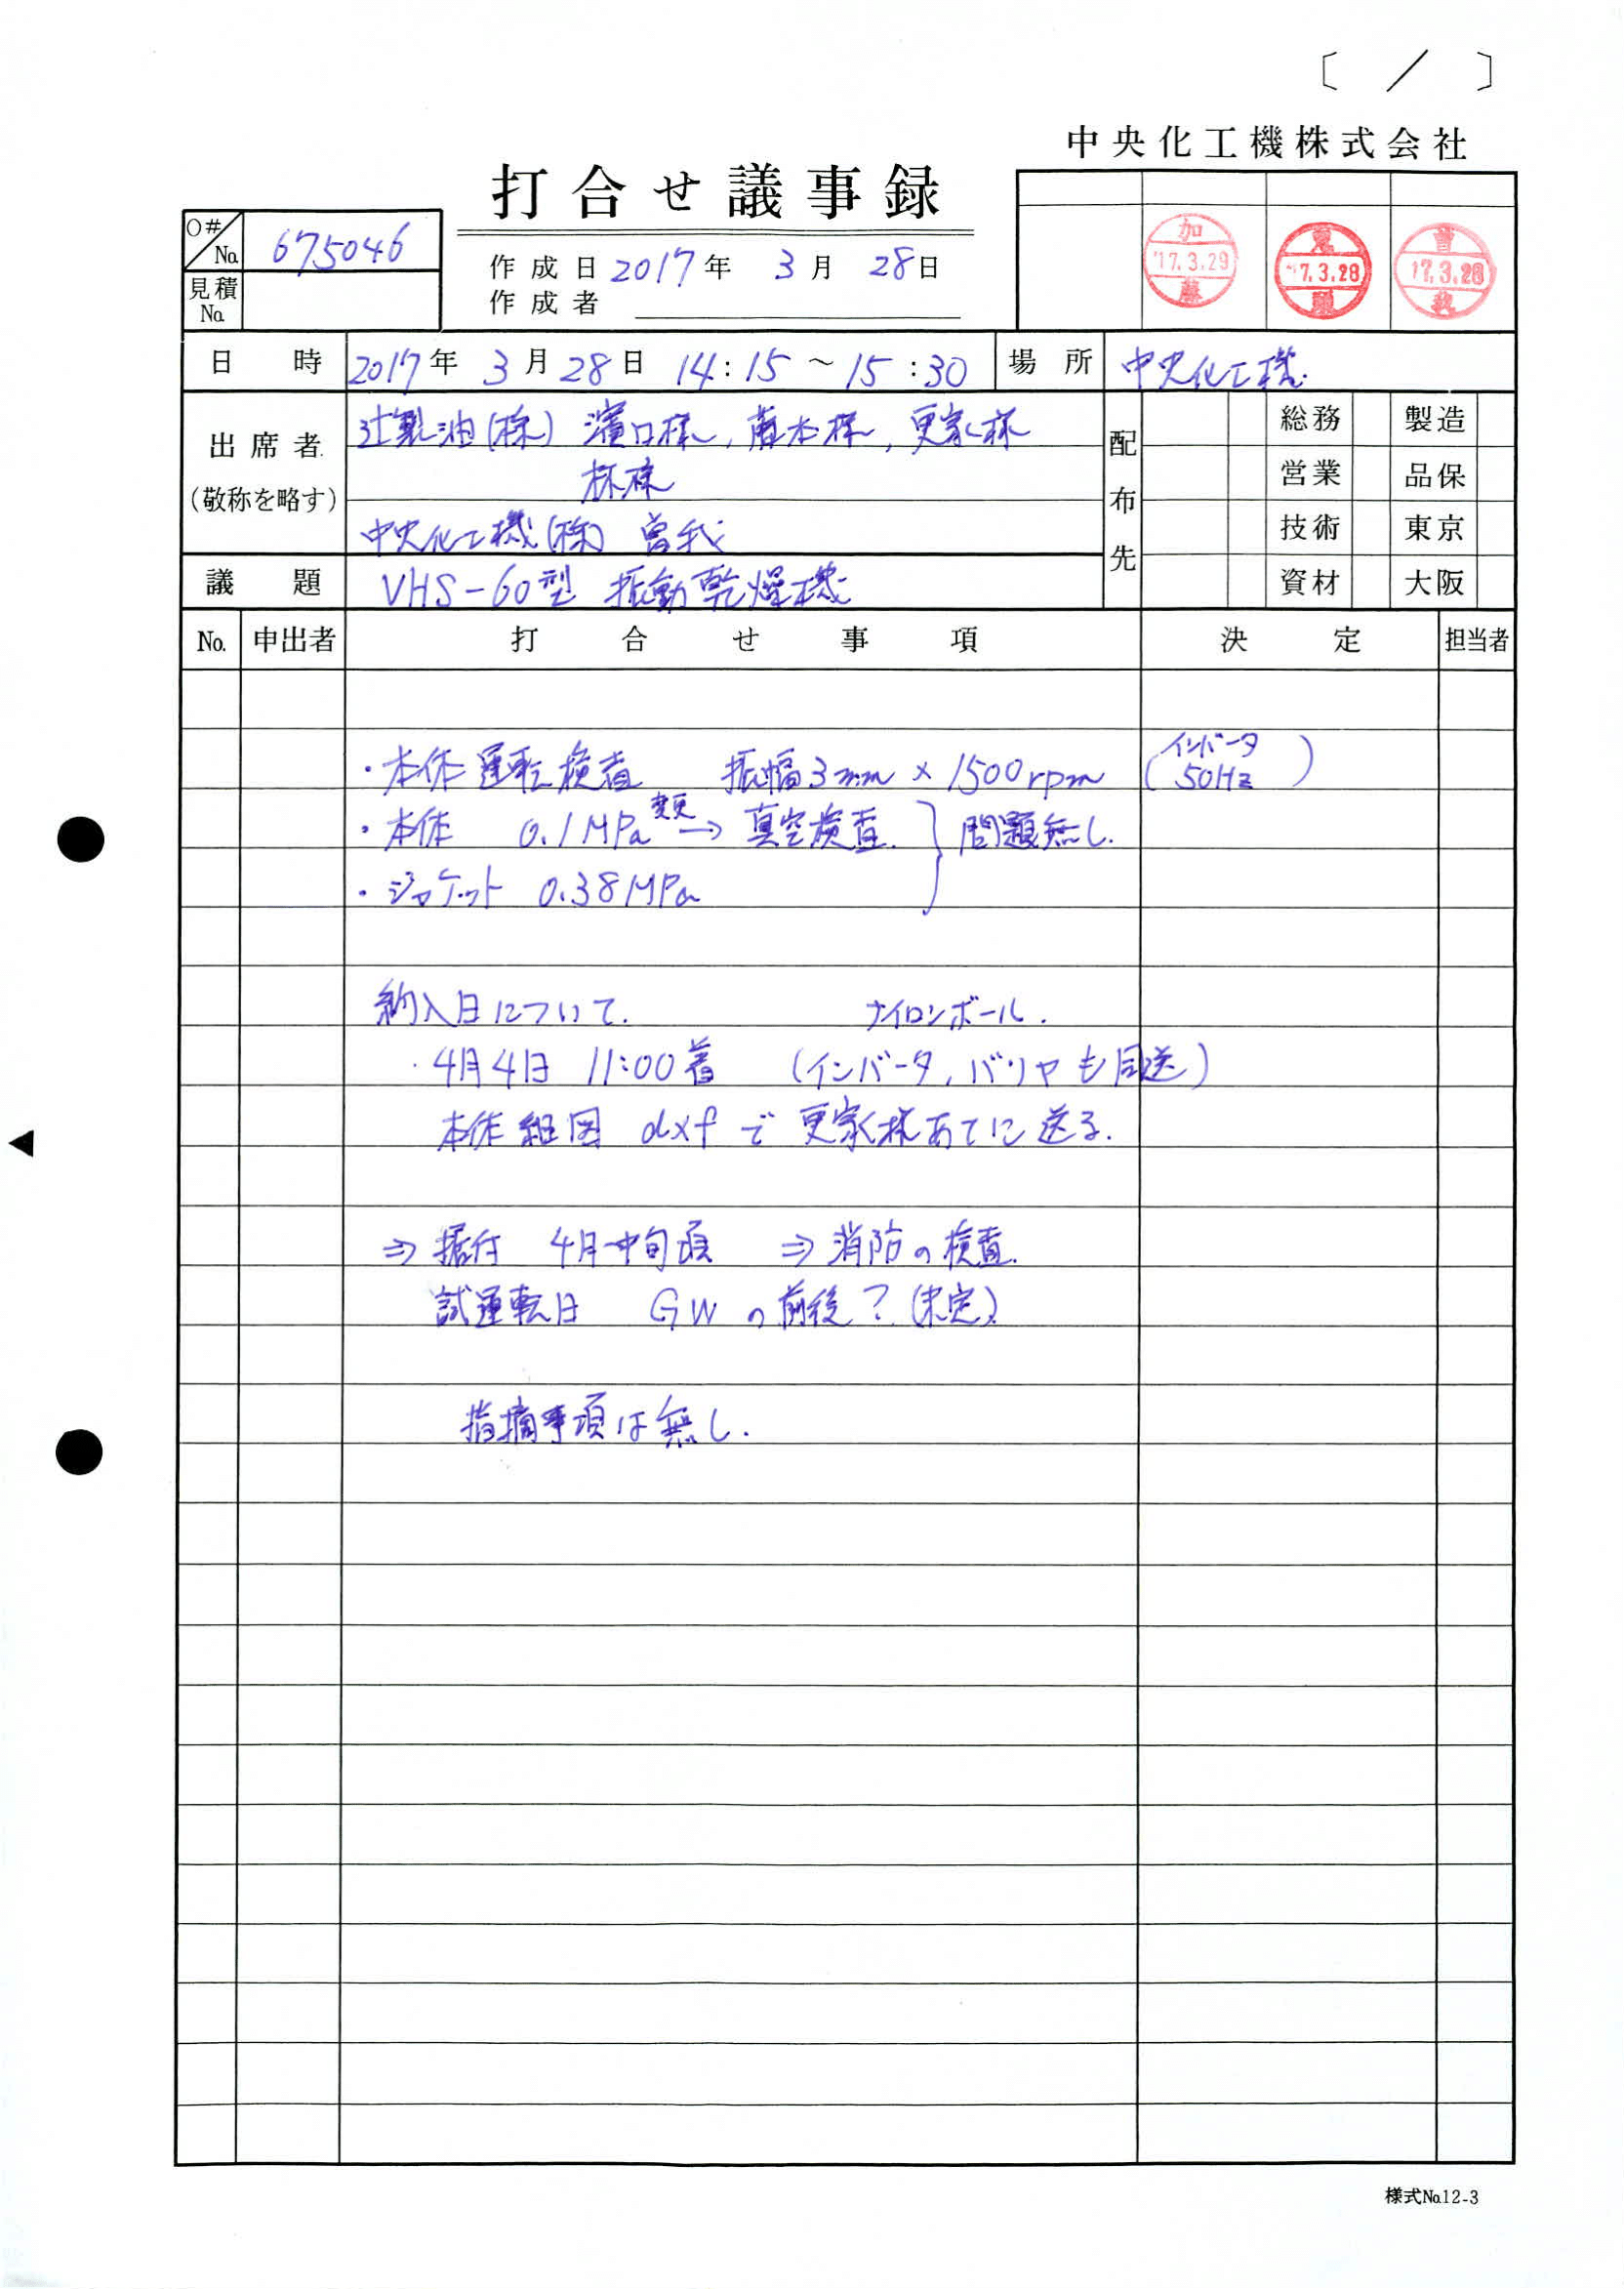 〔 / 〕
中央化工機株式会社
打合せ議事録
O#/No. 675046
見積No.
作成日 2017年 3月 28日
作成者
加 '17.3.29 藤
'17.3.28
曽 17.3.28 我
日時 2017年 3月 28日 14:15～15:30 場所 中央化工機
出席者 (敬称を略す)
辻製油(株) 濱口様, 藤本様, 更家様
林様
中央化工機(株) 曽我
配布先
総務 製造
営業 品保
技術 東京
資材 大阪
議題 VHS-60型 振動乾燥機
No. 申出者 打合せ事項 決定 担当者
・本体運転検査 振幅3mm × 1500rpm (インバータ 50Hz)
・本体 0.1MPa 変更→ 真空検査. } 問題無し.
・ジャケット 0.38MPa
納入日について. ナイロンボール.
・4月4日 11:00着 (インバータ, バリヤも同送)
本体組図 dxfで更家様あてに送る.
⇒ 据付 4月中旬頃 ⇒ 消防の検査.
試運転日 GWの前後? (未定)
指摘事項は無し.
様式No.12-3